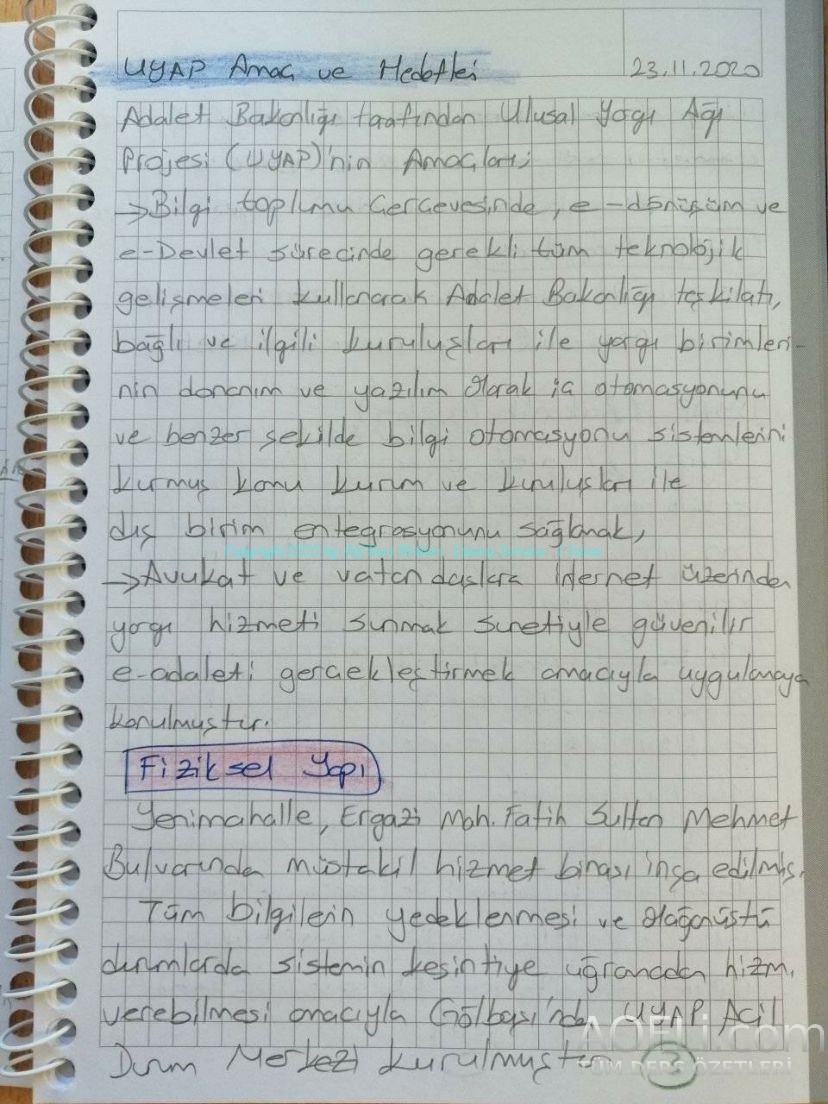 UYAP Amaç ve Hedefleri
23.11.2020
Adalet Bakanlığı tarafından Ulusal Yargı Ağı
Projesi (UYAP)'nin Amaçları;
→Bilgi toplumu Çerçevesinde, e-dönüşüm ve
e-Devlet sürecinde gerekli tüm teknolojik
gelişmeleri kullanarak Adalet Bakanlığı teşkilatı,
bağlı ve ilgili kuruluşları ile yargı birimleri-
nin donanım ve yazılım olarak iç otomasyonunu
ve benzer şekilde bilgi otomasyonu sistemlerini
kurmuş kamu kurum ve kuruluşları ile
dış birim entegrasyonunu sağlamak,
→Avukat ve vatandaşlara İnternet üzerinden
yargı hizmeti sunmak suretiyle güvenilir
e-adaleti gerçekleştirmek amacıyla uygulamaya
konulmuştur.
Fiziksel Yapı
Yenimahalle, Ergazi Mah. Fatih Sultan Mehmet
Bulvarında müstakil hizmet binası inşa edilmiş.
Tüm bilgilerin yedeklenmesi ve olağanüstü
durumlarda sistemin kesintiye uğramadan hizm.
verebilmesi amacıyla Gölbaşı'nda UYAP Acil
Durum Merkezi kurulmuştur
3
AOFLi.com
TÜM DERS ÖZETLERİ